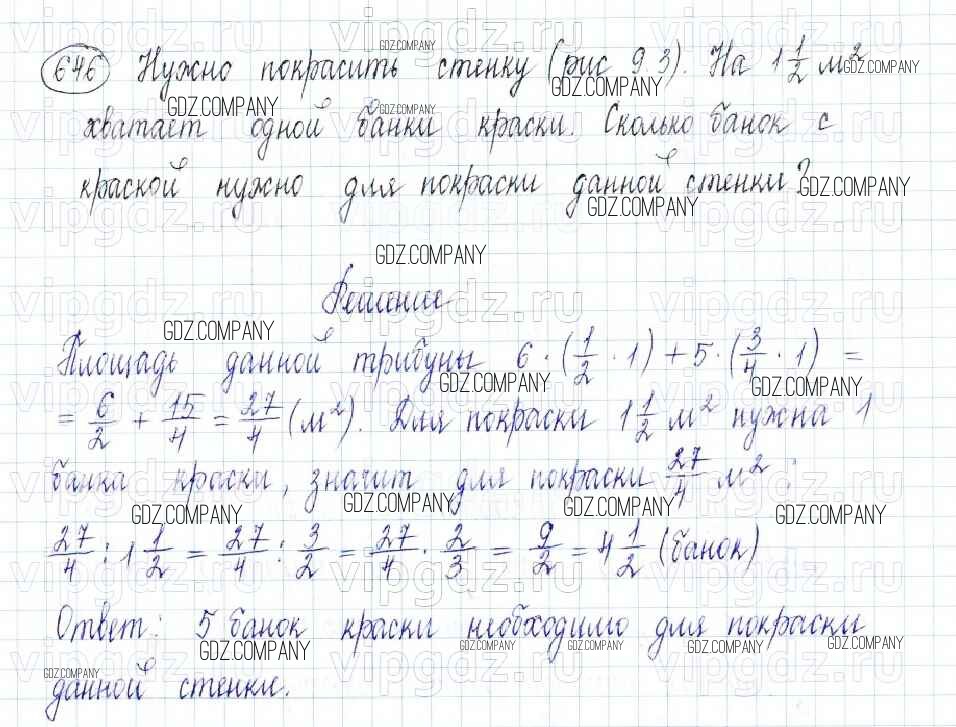 646 Нужно покрасить стенку (рис 9.3). На 1 1/2 м²
хватает одной банки краски. Сколько банок с
краской нужно для покраски данной стенки?
Решение
Площадь данной трибуны 6 · (1/2 · 1) + 5 · (3/4 · 1) =
= 6/2 + 15/4 = 27/4 (м²). Для покраски 1 1/2 м² нужна 1
банка краски, значит для покраски 27/4 м²:
27/4 : 1 1/2 = 27/4 : 3/2 = 27/4 · 2/3 = 9/2 = 4 1/2 (банок)
Ответ: 5 банок краски необходимо для покраски
данной стенки.
GDZ.COMPANY
vipgdz.ru